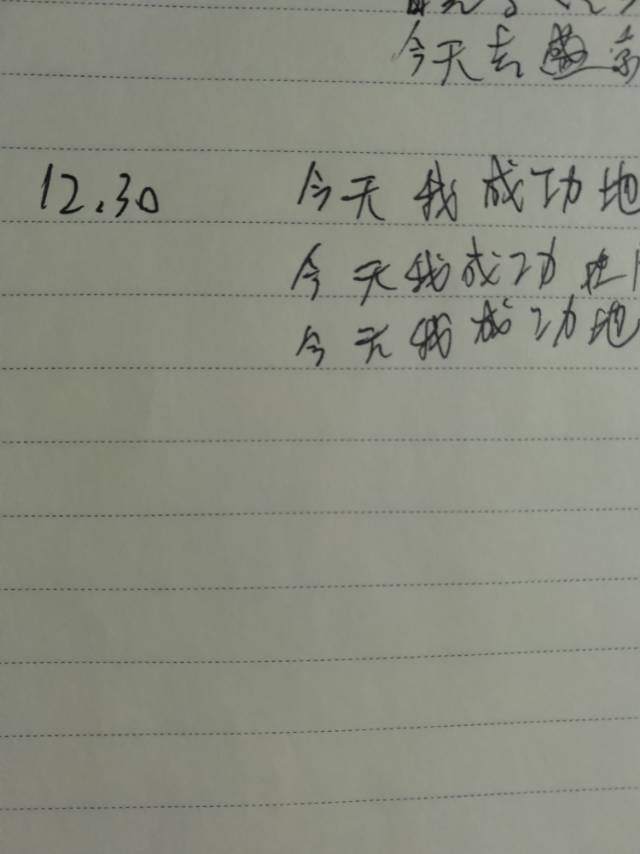 今天去盛京
12.30 今天我成功地
今天我成功地
今天我成功地